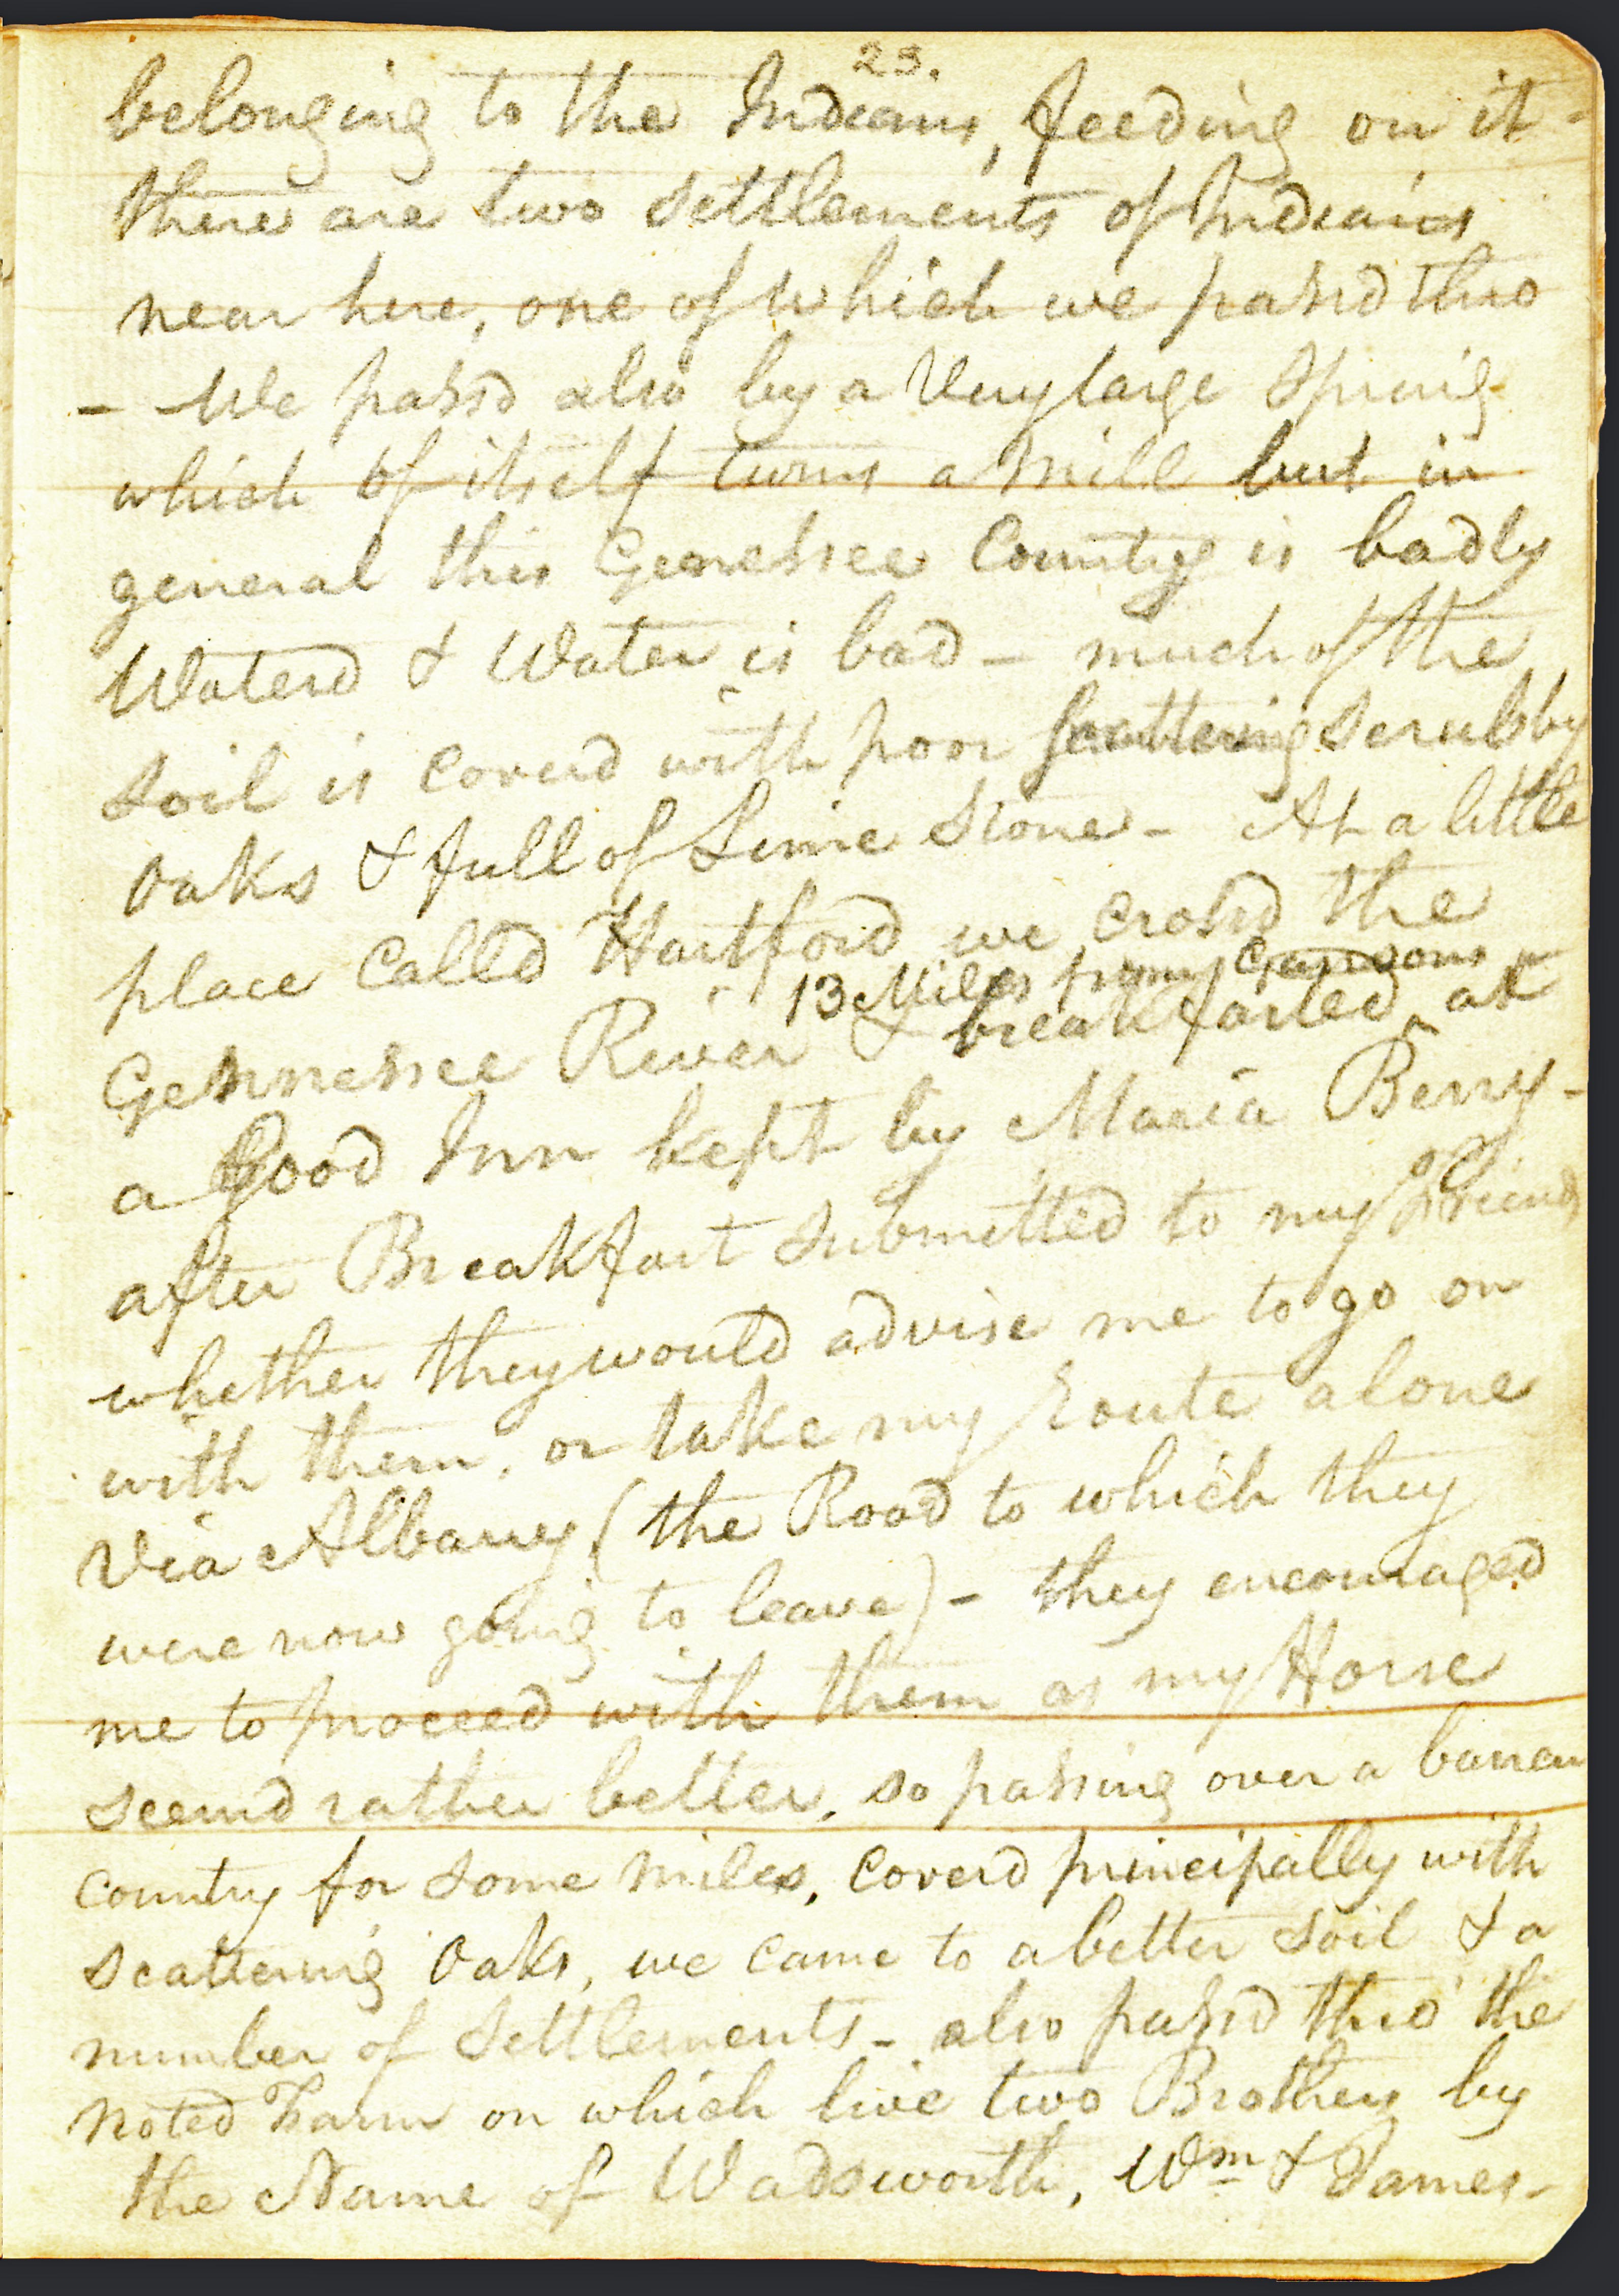 23.
belonging to the Indians, feeding on it -
there are two settlements of Indians
near here, one of which we passd thro
- We passd also by a Very large Spring
which of itself turns a Mill but in
general this Genessee Country is badly
Waterd & Water is bad - much of the
soil is coverd with poor scattering scrubby
Oaks & full of Lime Stone - At a little
place Called Hartford we crossd the
13 Miles from Gansons
Gennessee River & breakfasted ^ at
a Good Inn kept by Maria Berry -
after Breakfast submitted to my Friends
whether they would advise me to go on
with them, or take my Route alone
Via Albany (the Road to which they
were now going to leave) - they encouraged
me to proceed with them as my Horse
seemd rather better, so passing over a barren
country for some miles, Coverd principally with
scattering Oaks, we came to a better soil & a
number of Settlements - also passd thro' the
Noted Farm on which live two Brothers by
the Name of Wadsworth, Wm & James -